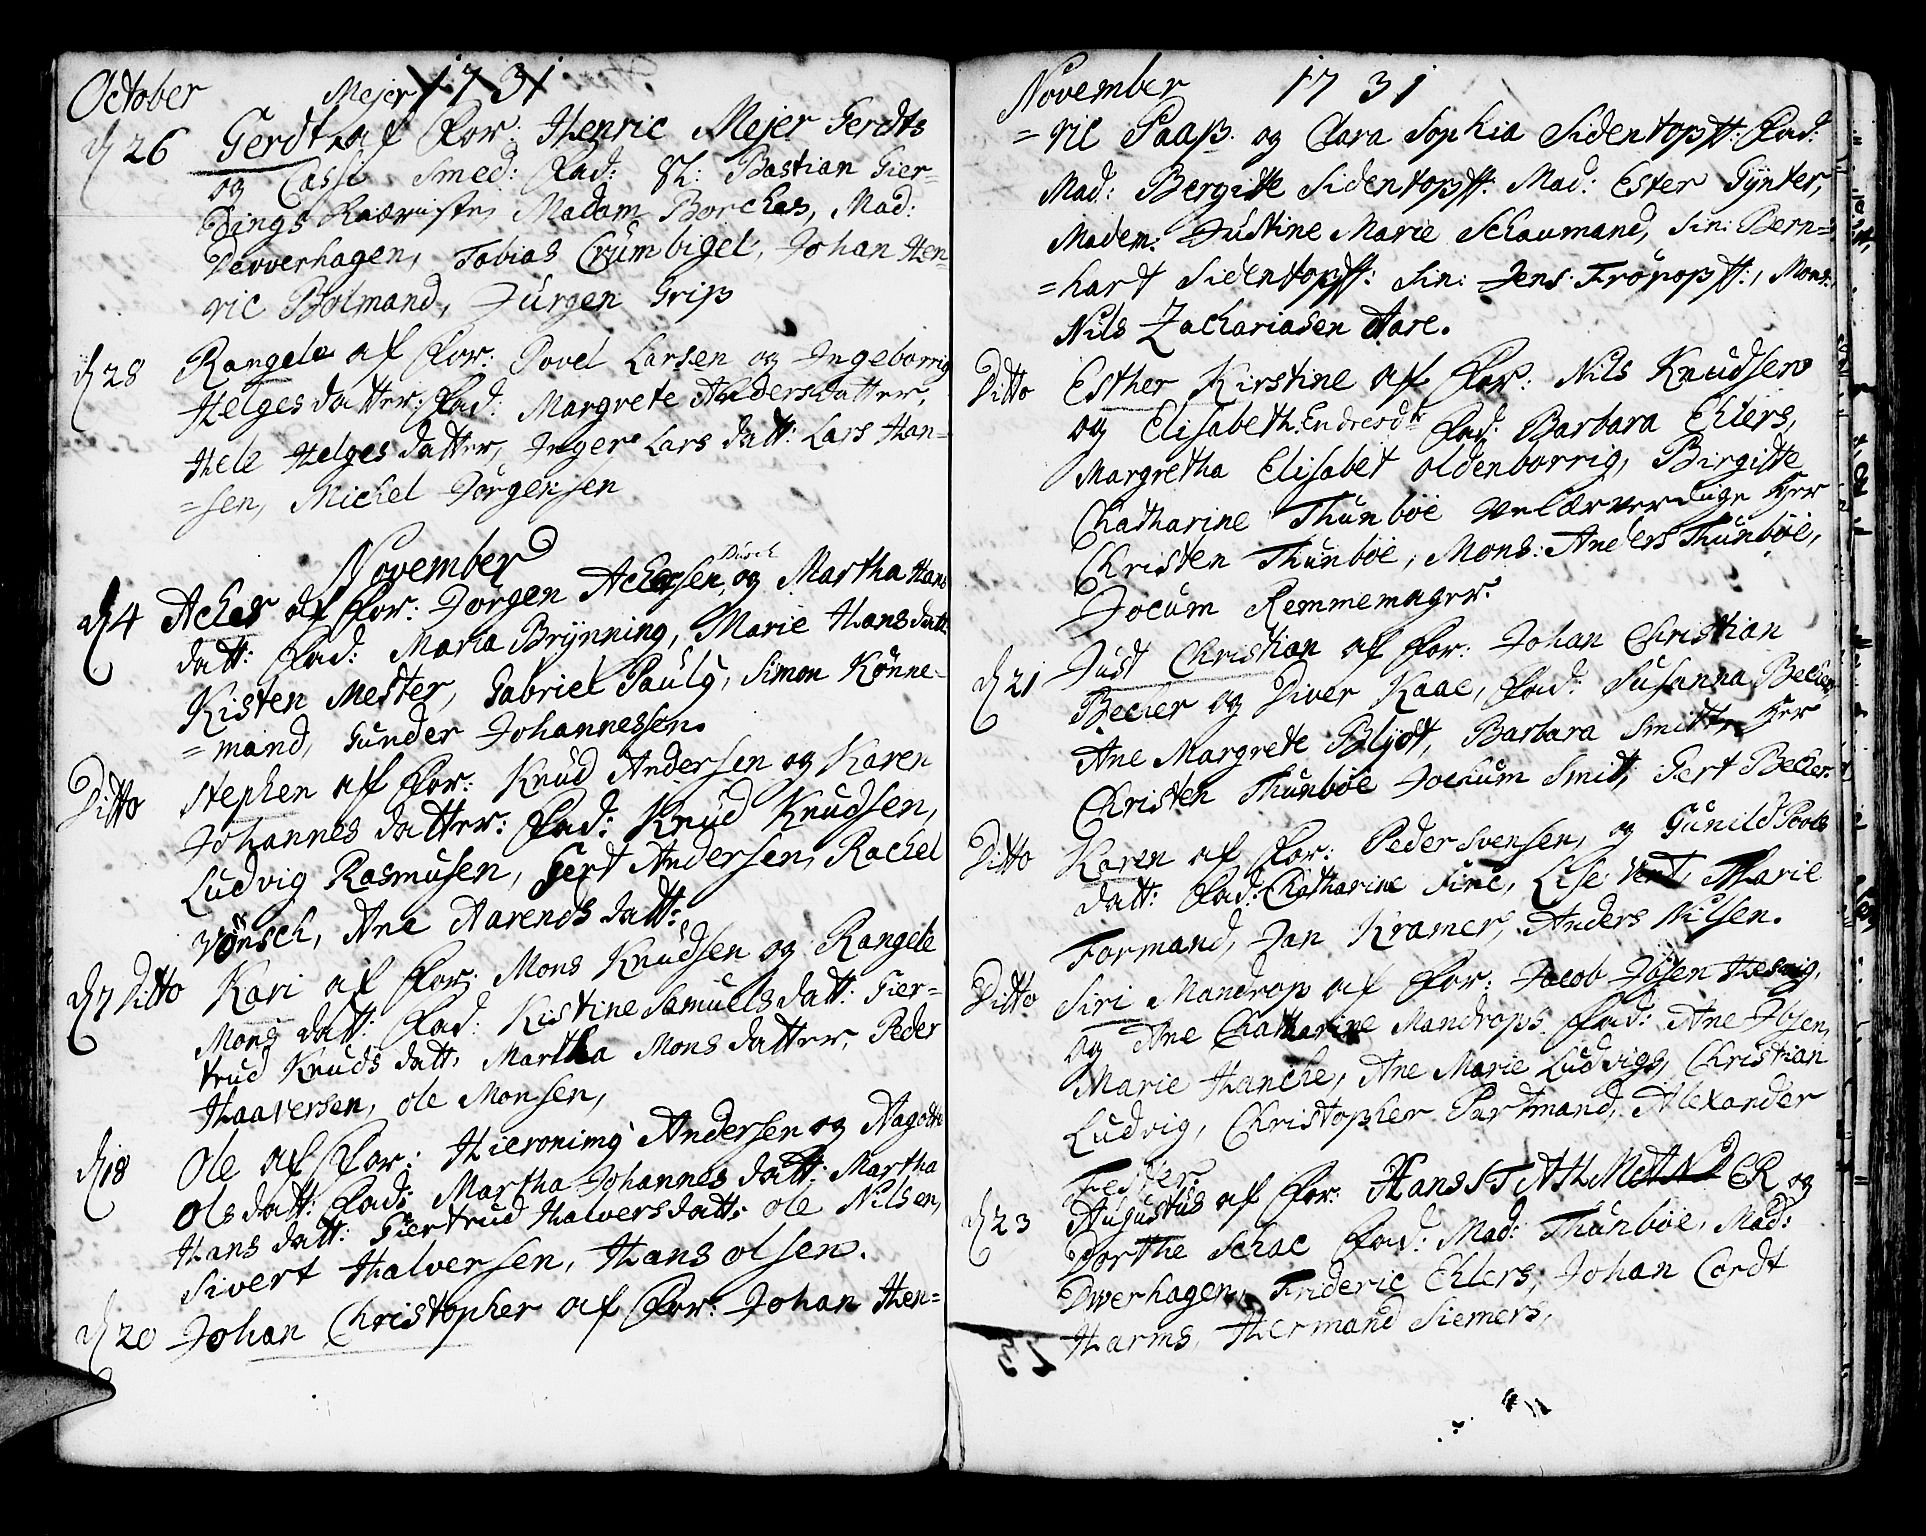 October Mejer 1731
d 26 Gerdt af For: Henric Mejer Gerdts
og Smed: Fad: Sh: Bastian Gier=
Madam Borches, Mad:
Devverhagen, Tobias Crumbigel, Johan Hen=
ric Bolmand, Jürgen Grip
d 28 Rangele af For: Povel Larsen og Ingeborrig
Helgesdatter, Fad: Margrete Andersdatter,
Hele Helgesdatter, Inger Lars datt: Lars Han=
=sen, Michel Jörgensen
November
d 4 Acher af For: Jorgen Achersen Busch og Martha Hans
datt: Fad: Maria Brynning, Marie Hansdatt
Kisten Mester, Gabriel Pauly, Simon Kønne=
=mand, Gunder Johannessøn.
Ditto Stephen af For: Knud Andersen og Karen
Johannesdatter: Fad: Knud Knudsen,
Ludvig Rasmusen, Gert Andersen, Rachel
Vönsch, Ane Aarends datt:
d 7 Ditto Kari af For: Mons Knudsen og Rangele
Mons datt: Fad: Kistine Samuelsdatt: Gier=
trud Knuds datt, Martha Monsdatter, Peder
Haaversen, ole Monsen,
d 18 Ole af For: Hieronimy Andersen og Aagothe
Olsdatt: Fad: Martha Johannes datt: Martha
Hans datt: Giertrud Halversdatt: ole Nilsen,
Sivert Halversen, Hans olsen.
d 20 Johan Christopher af For: Johan Hen=
November 1731
=ric Paaß og Clara Sophia Sidentopff: Fad:
Mad: Bergitte Sidentopff: Mad: Ester Gynter,
Madem: Justine Marie Schaumand, Sin: Bern=
=hart Sidentopff: Sin: Jens Fröpopff:, Mons:
Nils Zachariasen Aare.
Ditto Esther Kirstine af For: Nils Knudsen
og Elisabeth Endresdr Fad: Barbara Ehlers,
Margretha Elisabet oldenborrig, Birgitte
Chatharine Thunböe Velærverdige Her
Christen Thunböe, Mons: Anders Thunböe,
Jocum Remmemager.
d 21 Just Christian af For: Johan Christian
Becker og Diver Kaae, Fad: Susanna Becker
Ane Margrete Blydt, Barbara Smitt, Her
Christen Thunböe Jochum Smit, Gert Becker.
Ditto Karen af For: Peder Svensen, og Gunild Povels
datt: Fad: Chatharine Fine, Lise Vent, Marie
Formand, Jan Kramer, Anders Nilsen.
Ditto Siri Mandrop af For: Jacob Jbsen
og Ane Chatharine Mandrops. Fad: Ane Jbsen,
Marie Hanche, Ane Marie Ludvigs, Christian
Ludvig, Christopher Partmand, Alexander
Fester.
d 23 Augustus af For: Hans og
Dorthe Schac Fad: Mad: Thunböe, Mad:
Dwerhagen, Frideric Ehlers, Johan Cordt
Harms, Hermand Siemers,